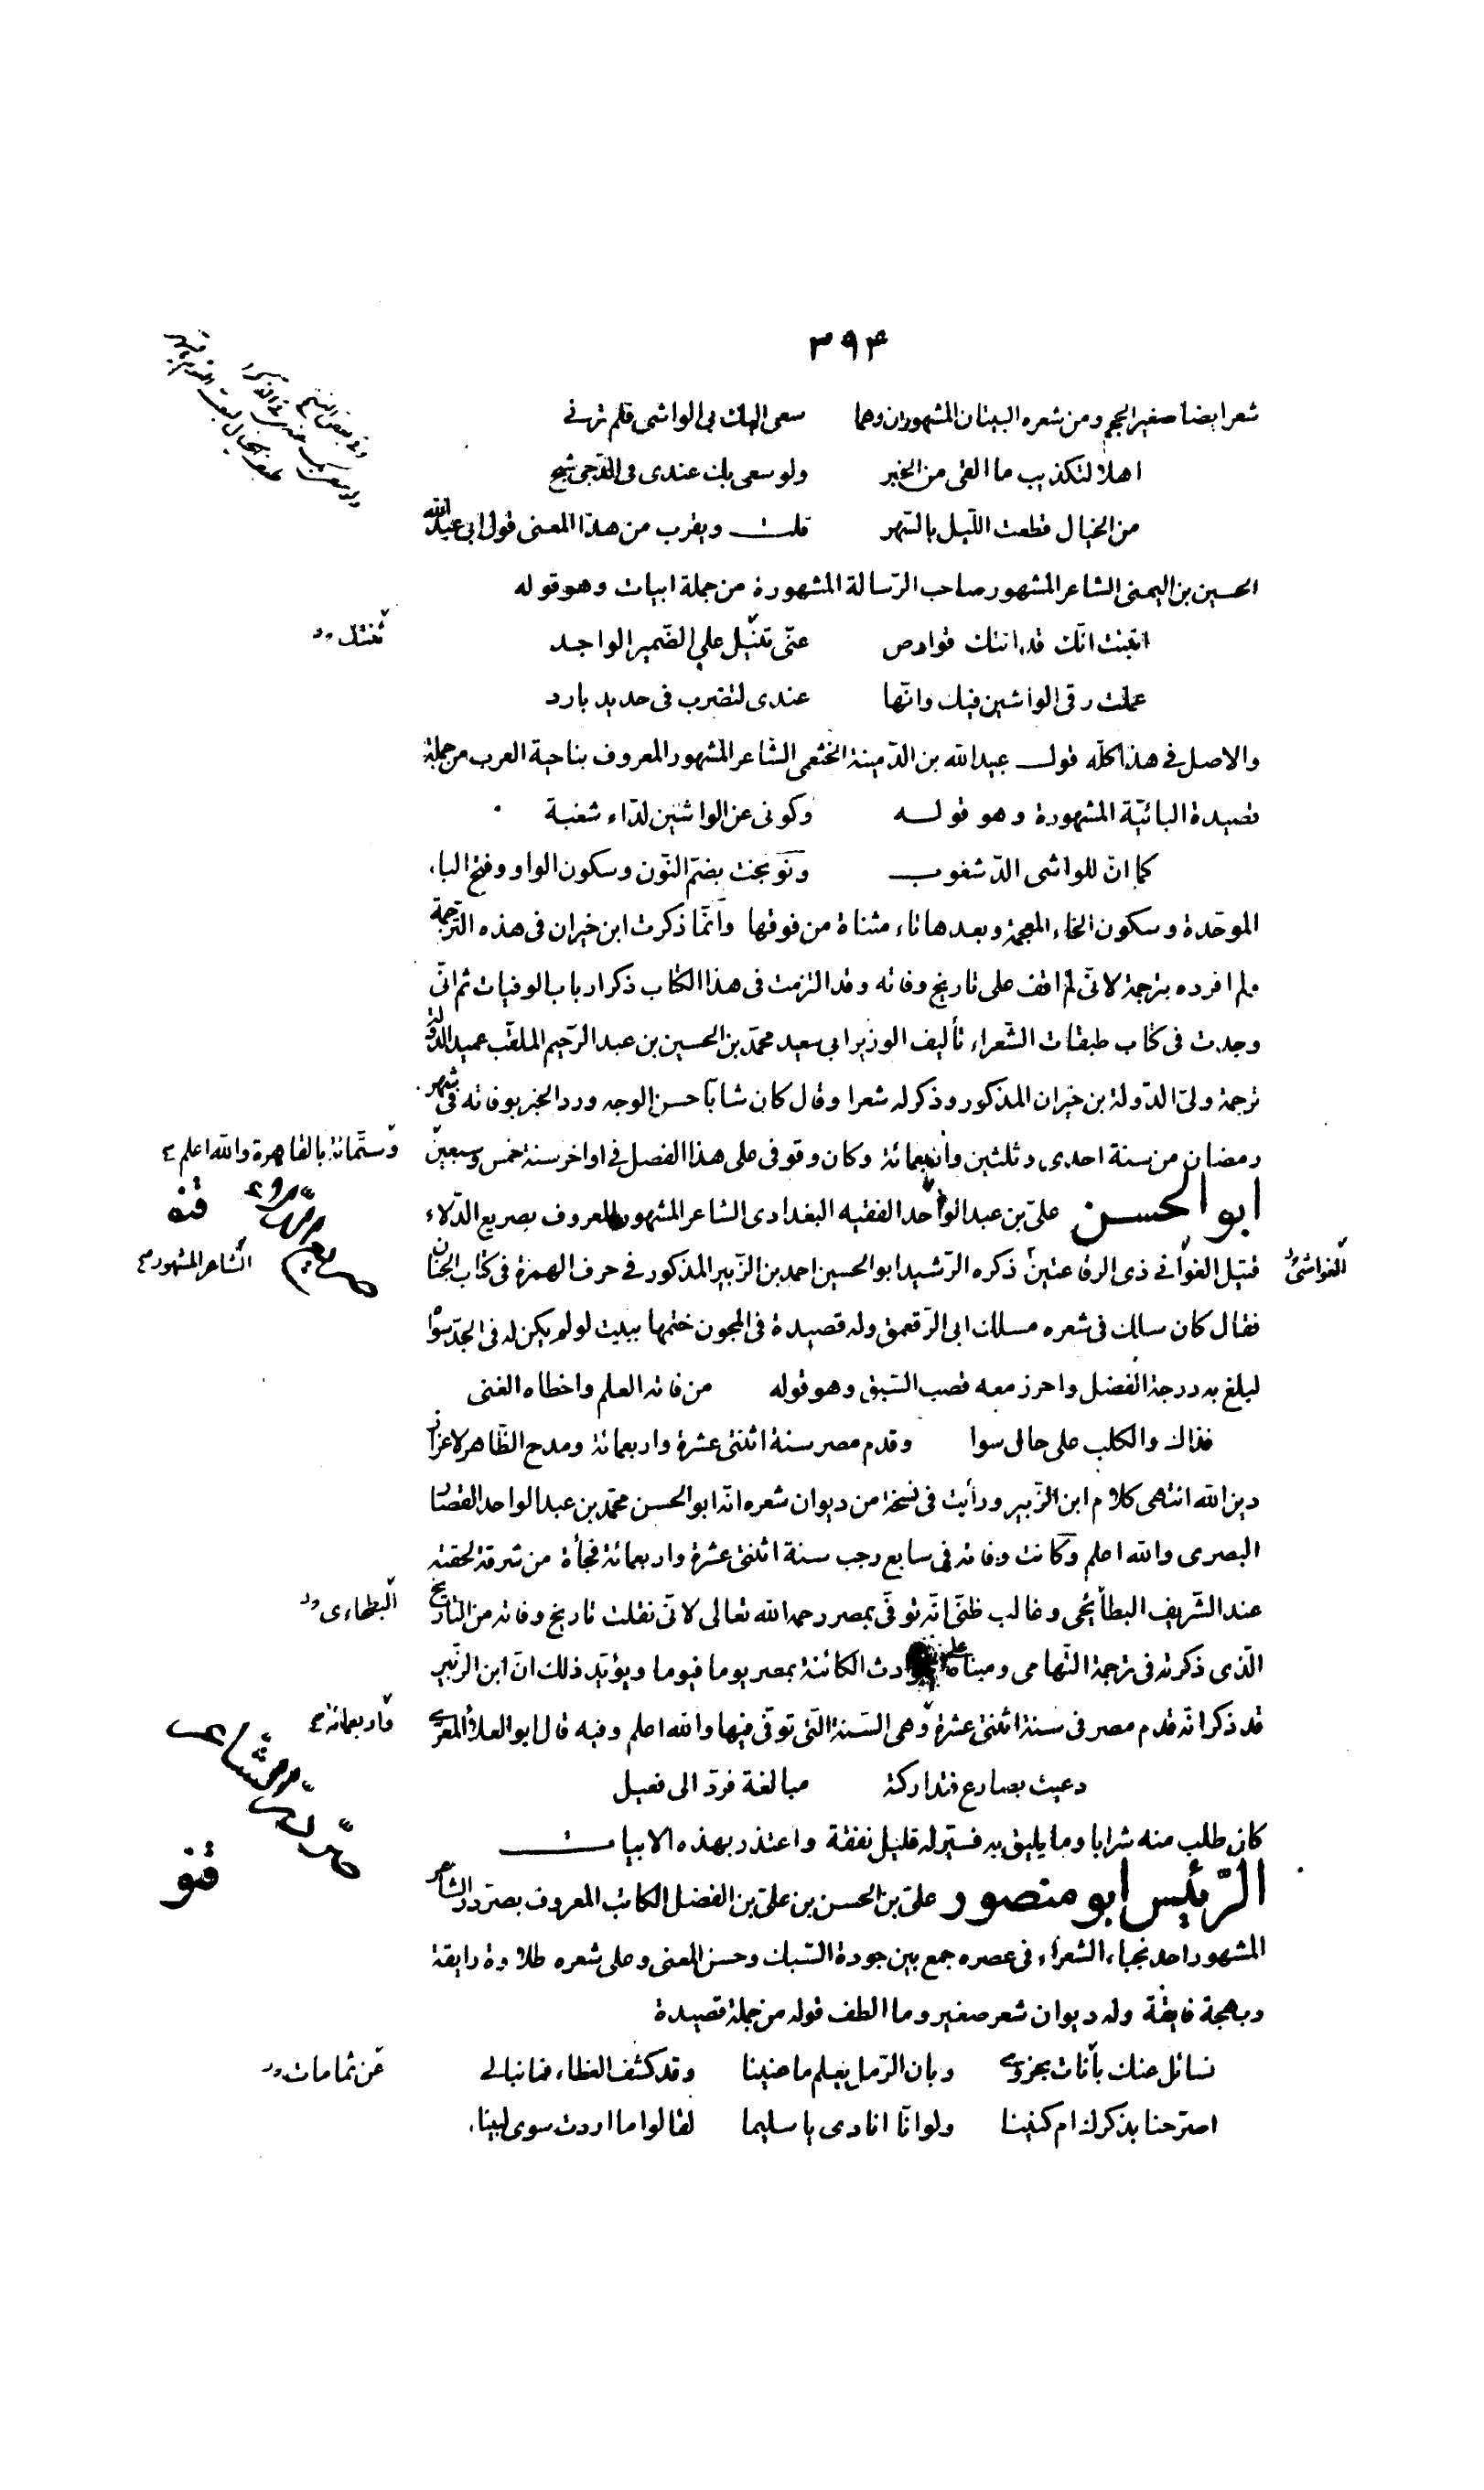 ٣٩۴
شعر ايضا صغير الحجم ومن شعره البيتان المشهوران وهما سعى اليك بى الواشى فلم ترنى
اهلا لتكذيب ما القى من الخبر ولو سعى بك عندى فى الدّجى شبح
من الخيال قطعت اللّيل بالسّهر قلت ويقرب من هذا المعنى قول ابى عبد الله
الحسين بن اليمنى الشاعر المشهور صاحب الرّسالة المشهورة من جملة ابيات وهو قوله
انبئت انّك قد اتتك قوارص عنّى تثقل على الضّمير الواجد
عملت رقى الواشين فيك وانّها عندى لتضرب فى حديد بارد
والاصل فى هذا كلّه قول عبد الله بن الدّمينة الخثعمى الشّاعر المشهور المعروف بناحية العرب من جملة
قصيدة البائيّة المشهورة وهو قوله وكونى عن الواشين لدّاء شغبة
كما انّ للواشى الدّ شغوب ونوبخت بضمّ النّون وسكون الواو وفتح الباء
الموحّدة وسكون الخاء المعجمة وبعدها تاء مثناة من فوقها وانّما ذكرت ابن خيران فى هذه التّرجمة
ولم افرده بترجمة لانّى لم اقف على تاريخ وفاته وقد التزمت فى هذا الكتاب ذكر ارباب الوفيات ثم انّى
وجدت فى كتاب طبقات الشّعراء تأليف الوزير ابى سعيد محمّد بن الحسين بن عبد الرّحيم الملقّب عميد الدّولة
ترجمة ولىّ الدّولة بن خيران المذكور وذكر له شعرا وقال كان شابّا حسن الوجه ورد الخبر بوفاته فى شهر
رمضان من سنة احدى وثلثين واربعمائة وكان وقوفى على هذا الفصل فى اواخر سنة خمس وسبعين
وستّمائة بالقاهرة والله اعلم
ابو الحسن علىّ بن عبد الواحد الفقيه البغدادى الشاعر المشهور المعروف بصريع الدّلاء
الشاعر المشهور
الغواشى
قتيل الغوانى ذى الرقاعتين ذكره الرّشيد ابو الحسين احمد بن الزّبير المذكور فى حرف الهمزة فى كتاب الجنان
فقال كان سالك فى شعره مسلك ابى الرّقعمق وله قصيدة فى المجون ختمها ببيت لو لم يكن له فى الجدّ سواه
ليبلغ به درجة الفضل واحرز معه قصب السّبق وهو قوله من فاته العلم واخطاه الغنى
فذاك والكلب على حال سوا وقدم مصر سنة اثنتى عشرة واربعمائة ومدح الظّاهر لاعزاز
دين الله انتهى كلام ابن الزّبير ورأيت فى نسخة من ديوان شعره انّه ابو الحسن محمّد بن عبد الواحد القصّار
البصرى والله اعلم وكانت وفاته فى سابع رجب سنة اثنتى عشرة واربعمائة فجأة من شرقة لحقته
عند الشّريف البطائحى وغالب ظنّى انّه توفّى بمصر رحمه الله تعالى لانّى نقلت تاريخ وفاته من التّاريخ
البطحاءى
الّذى ذكرته فى ترجمة التّهامى ومبناه على الكائنة بمصر يوما فيوما ويؤيّد ذلك انّ ابن الزّبير
قد ذكر انّه قدم مصر فى سنة اثنتى عشرة وهى السّنة الّتى توفّى فيها والله اعلم وفيه قال ابو العلاء المعرّى
واربعمائة
دعيت بصارع فتداركته مبالغة فردّ الى فعيل
كان طلب منه شرابا وما يليق به فسيّر له قليل نفقة واعتذر بهذه الابيات
الرّئيس ابو منصور علىّ بن الحسن بن علىّ بن الفضل الكاتب المعروف بصرّدرّ الشاعر
صرّدرّ الشاعر
المشهور احد نجباء الشعراء فى عصره جمع بين جودة السّبك وحسن المعنى وعلى شعره طلاوة رايقة
وبهجة فايقة وله ديوان شعر صغير وما الطف قوله من جملة قصيدة
نسائل عنك بأنات بحزوى وبان الرّمل يعلم ما عنينا وقد كشف الغطاء فما نبالى
عن ثمامات
اصرّحنا بذكرك ام كنينا ولو انّا انادى يا سليما لقالوا ما اردت سوى لبينا